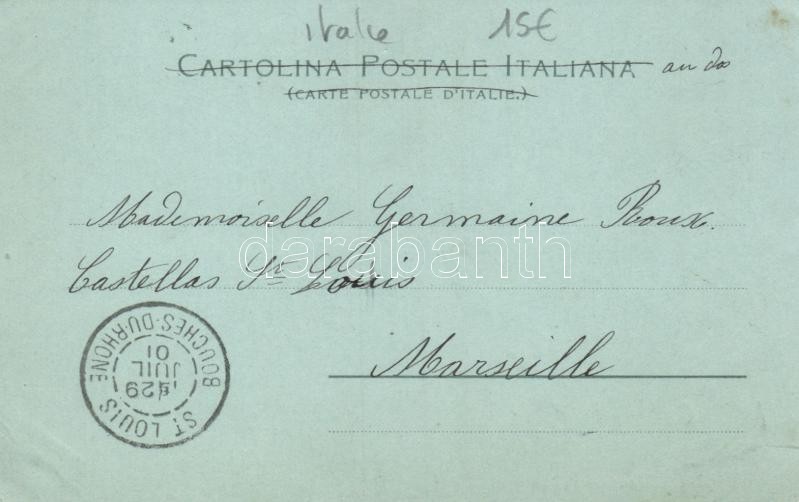 italie 15€
CARTOLINA POSTALE ITALIANA au dos
(CARTE POSTALE D'ITALIE.)
Mademoiselle Germaine Roux.
darabanth
Castellas St Louis
Marseille
ST LOUIS
BOUCHES-DU-RHONE
29
JUIL
01